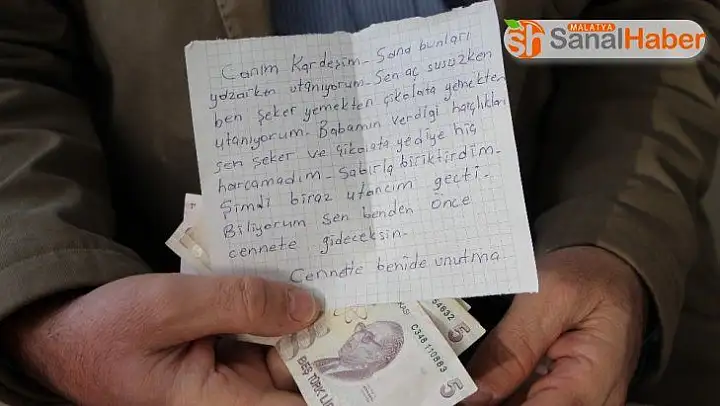 MALATYA
SH SanalHaber
Canım Kardeşim- Sana bunları
yazarken utanıyorum- Sen aç susuzken
ben şeker yemekten çikolata yemekten
utanıyorum- Babamın verdiği harçlıkları
sen şeker ve çikolata yediye hiç
harcamadım- Sabırla biriktirdim-
Şimdi biraz utancım geçti-
Biliyorum sen benden önce
cennete gideceksin-
Cennette benide unutma
64632 5
C346 110863
BEŞ TÜRK LİRASI
5